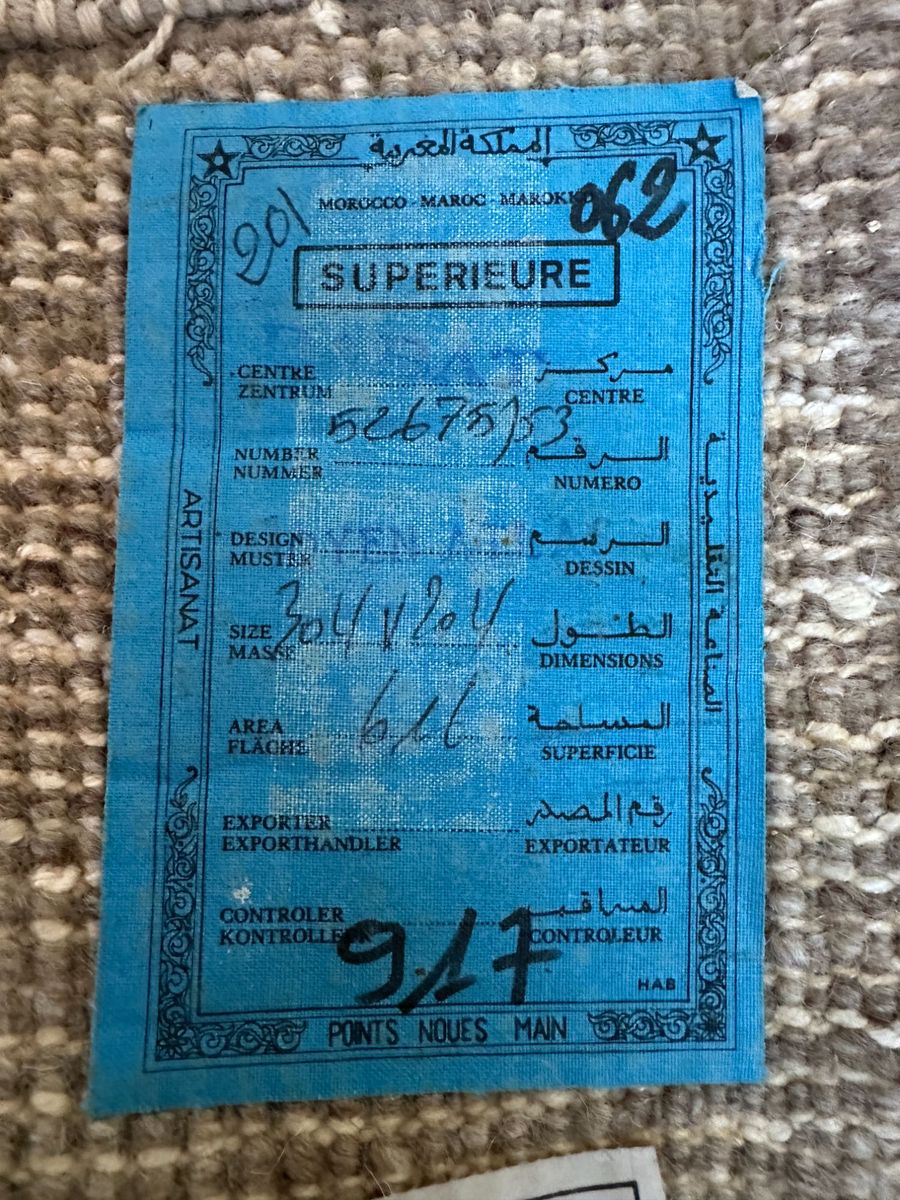 المملكة المغربية
MOROCCO - MAROC - MAROKK
062
201
SUPERIEURE
CENTRE مركز
ZENTRUM CENTRE
52675/53
NUMBER الرقم
NUMMER NUMERO
DESIGN الرسم
MUSTER DESSIN
304 x 204
SIZE الطول
MASSE DIMENSIONS
616
AREA المساحة
FLÄCHE SUPERFICIE
EXPORTER رقم المصدر
EXPORTHANDLER EXPORTATEUR
CONTROLER المراقب
KONTROLLE CONTROLEUR
917
HAB
POINTS NOUES MAIN
ARTISANAT
الصناعة التقليدية